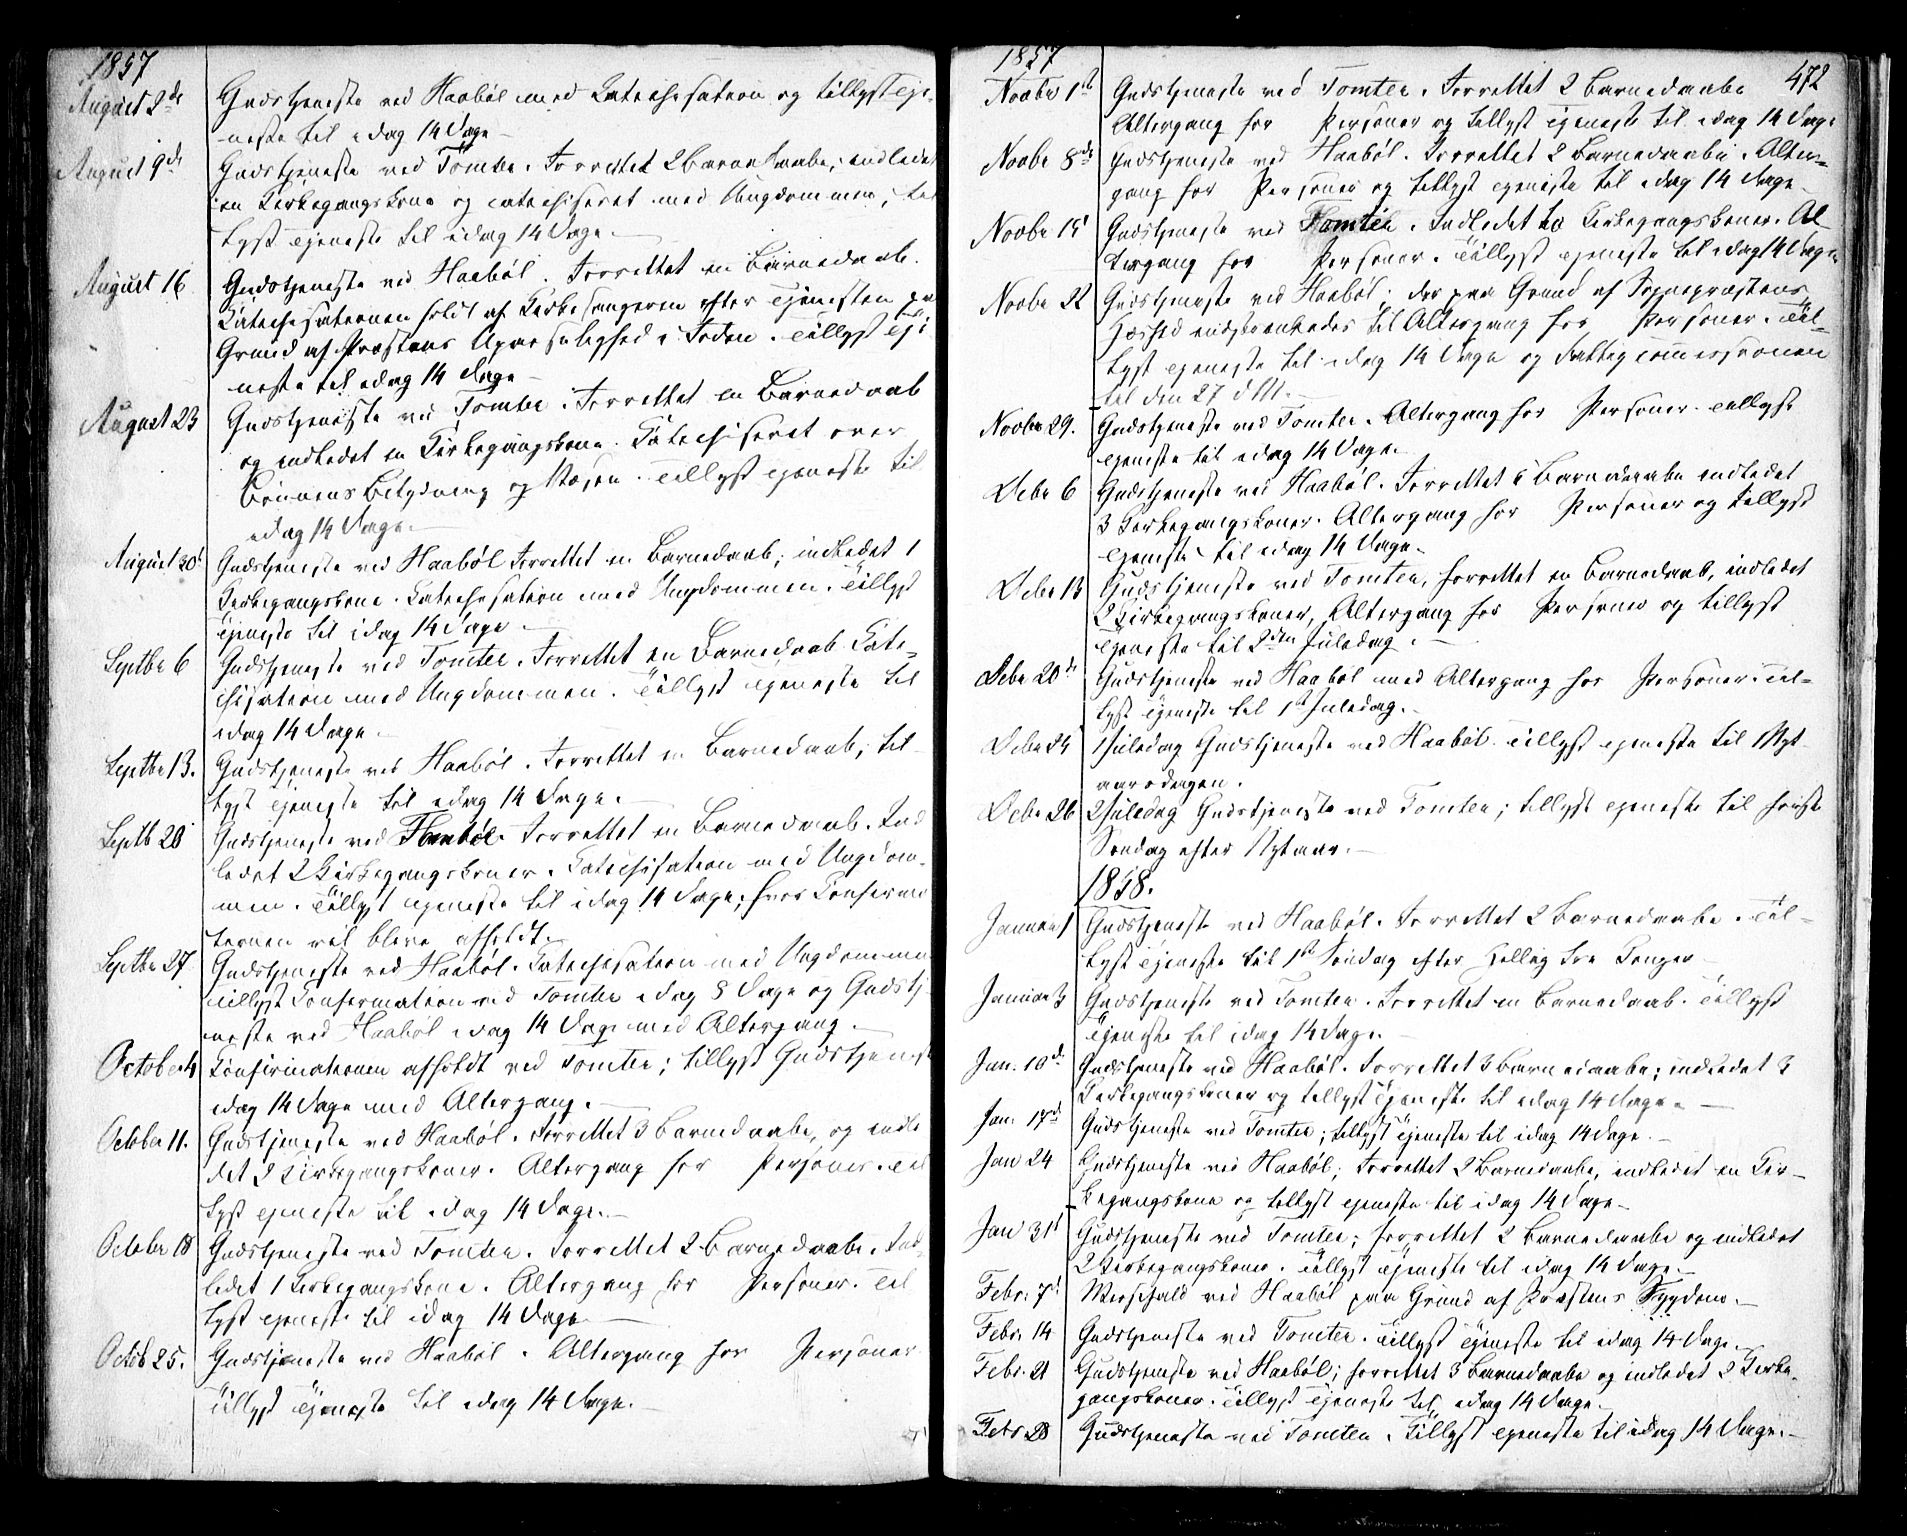 1857
August 2de Gudstjeneste ved Haabøl med Katechisation og tillyst Tje-
neste til idag 14 Dage
August 9de Gudstjeneste ved Tomter. Forrettet 2 Barnedaabe, indledet
en Kirkegangskone og catechiseret med Ungdommen, til
lyst Tjeneste til idag 14 Dage.
August 16 Gudstjeneste ved Haabøl. Forrettet en Barnedaab.
Katechisationen holdt af Kirkesangeren efter Tjenesten paa
Grund af Præstens Upasselighed i Foden. Tillyst Tje
neste til idag 14 Dage
August 23 Gudstjeneste ved Tomter. Forrettet en Barnedaab
og indledet en Kirkegangskone. Katechiseret over
Bønnens Betydning og Væsen. Tillyst Tjeneste til
idag 14 Dage.
August 30t Gudstjeneste ved Haabøl Forrettet en Barnedaab, indledet 1
Kirkegangskone. Katechisation med Ungdommen. Tillyst
Tjeneste til idag 14 Dage
Septbr 6 Gudstjeneste ved Tomter. Forrettet en Barnedaab Kate-
chisation med Ungdommen. Tillyst Tjeneste til
idag 14 Dage.
Septbr 13. Gudstjeneste ved Haabøl. Forrettet en Barnedaab, til-
lyst Tjeneste til idag 14 Dage.
Septb 20 Gudstjeneste ved Forrettet en Barnedaab. Ind
ledet 2 Kirkegangskoner. Katechisation med Ungdom-
men. Tillyst Tjeneste til idag 14 Dage, hvor Confirma
tionen vil blive afholdt.
Septbr 27 Gudstjeneste ved Haabøl. Katechisation med Ungdommen
tillyst Confirmation ved Tomter idag 8 Dage og Gudstj
neste ved Haabøl idag 14 Dage med Altergang.
October 4 Confirmationen afholdt ved Tomter; tillyst Gudstjeneste
idag 14 Dage med Altergang.
October 11. Gudstjeneste ved Haabøl. Forrettet 3 Barnedaabe, og indle
det 2 Kirkegangskoner. Altergang for Personer. Til
lyst Tjeneste til idag 14 Dage.
October 18 Gudstjeneste ved Tomter. Forrettet 2 Barnedaabe. Ind-
ledet 1 Kirkegangskone. Altergang for Personer. Til
lyst Tjeneste til idag 14 Dage
Octob 25. Gudstjeneste ved Haabøl. Altergang for Personer
tillyst Tjeneste til idag 14 Dage.
1857
472
Novbr 1st Gudstjeneste ved Tomter. Forrettet 2 Barnedaabe
Altergang for Personer og tillyst Tjeneste til idag 14 Dage
Novbr 8de Gudstjeneste ved Haabøl. Forrettet 2 Barnedaabe. Alter-
gang for Personer og tillyst Tjeneste til idag 14 Dage
Novbr 15 Gudstjeneste ved Tomter. Indledet to Kirkegangskoner. Al-
tergang for Personer. Tillyst Tjeneste til idag 14 Dage
Novbr 22 Gudstjeneste ved Haabøl; der paa Grund af Sognepræstens
Hæshed indskrænkedes til Altergang for Personer. Til-
lyst Tjeneste til idag 14 Dage og Fattigcommissionen
til den 27 d M.
Novbr 29. Gudstjeneste ved Tomter. Altergang for Personer. Tillyst
Tjeneste til idag 14 Dage.
Debr 6 Gudstjeneste ved Haabøl. Forrettet Barnedaabe indledet
3 Kirkegangskoner. Altergang for Personer og tillyst
Tjeneste til idag 14 Dage.
Debr 13 Gudstjeneste ved Tomter, forrettet en Barnedaab, indledet
2 Kirkegangskoner, Altergang for Personer og tillyst
Tjeneste til 2den Juledag.
Debr 20de Gudstjeneste ved Haabøl med Altergang for Personer. Til-
lyst Tjeneste til 1st Juledag.
Debr 25 1 Juledag Gudstjeneste ved Haabøl. Tillyst Tjeneste til Nyt-
aarsdagen.
Debr 26 2 Juledag Gudstjeneste ved Tomter; tillyst Tjeneste til første
Søndag efter Nytaar.
1858.
Januar 1 Gudstjeneste ved Haabøl. Forrettet 2 Barnedaabe. Til-
lyst Tjeneste til 1st Søndag efter Hellig tre Konger
Januar 3 Gudstjeneste ved Tomter. Forrettet en Barnedaab. Tillyst
Tjeneste til idag 14 Dage.
Jan. 10de Gudstjeneste ved Haabøl. Forrettet 3 Barnedaabe; indledet 3
Kirkegangskoner og tillyst Tjeneste til idag 14 Dage.
Jan. 17de Gudstjeneste ved Tomter; tillyst Tjeneste til idag 14 Dage.
Jan 24 Gudstjeneste ved Haabøl; Forrettet 2 Barnedaabe, indledet en Kir-
kegangskone og tillyst Tjeneste til idag 14 Dage
Jan 31t Gudstjeneste ved Tomter; forrettet 2 Barnedaabe og indledet
2 Kirkegangskoner. Tillyst Tjeneste til idag 14 Dage.
Febr. 7d Messefald ved Haabøl paa Grund af Præstens Sygdom.
Febr. 14 Gudstjeneste ved Tomter. Tillyst Tjeneste til idag 14 Dage.
Febr. 21 Gudstjeneste ved Haabøl; forrettet 3 Barnedaabe og indledet 2 Kirke-
gangskoner. Tillyst Tjeneste til idag 14 Dage.
Febr 28 Gudstjeneste ved Tomter. Tillyst Tjeneste til idag 14 Dage.